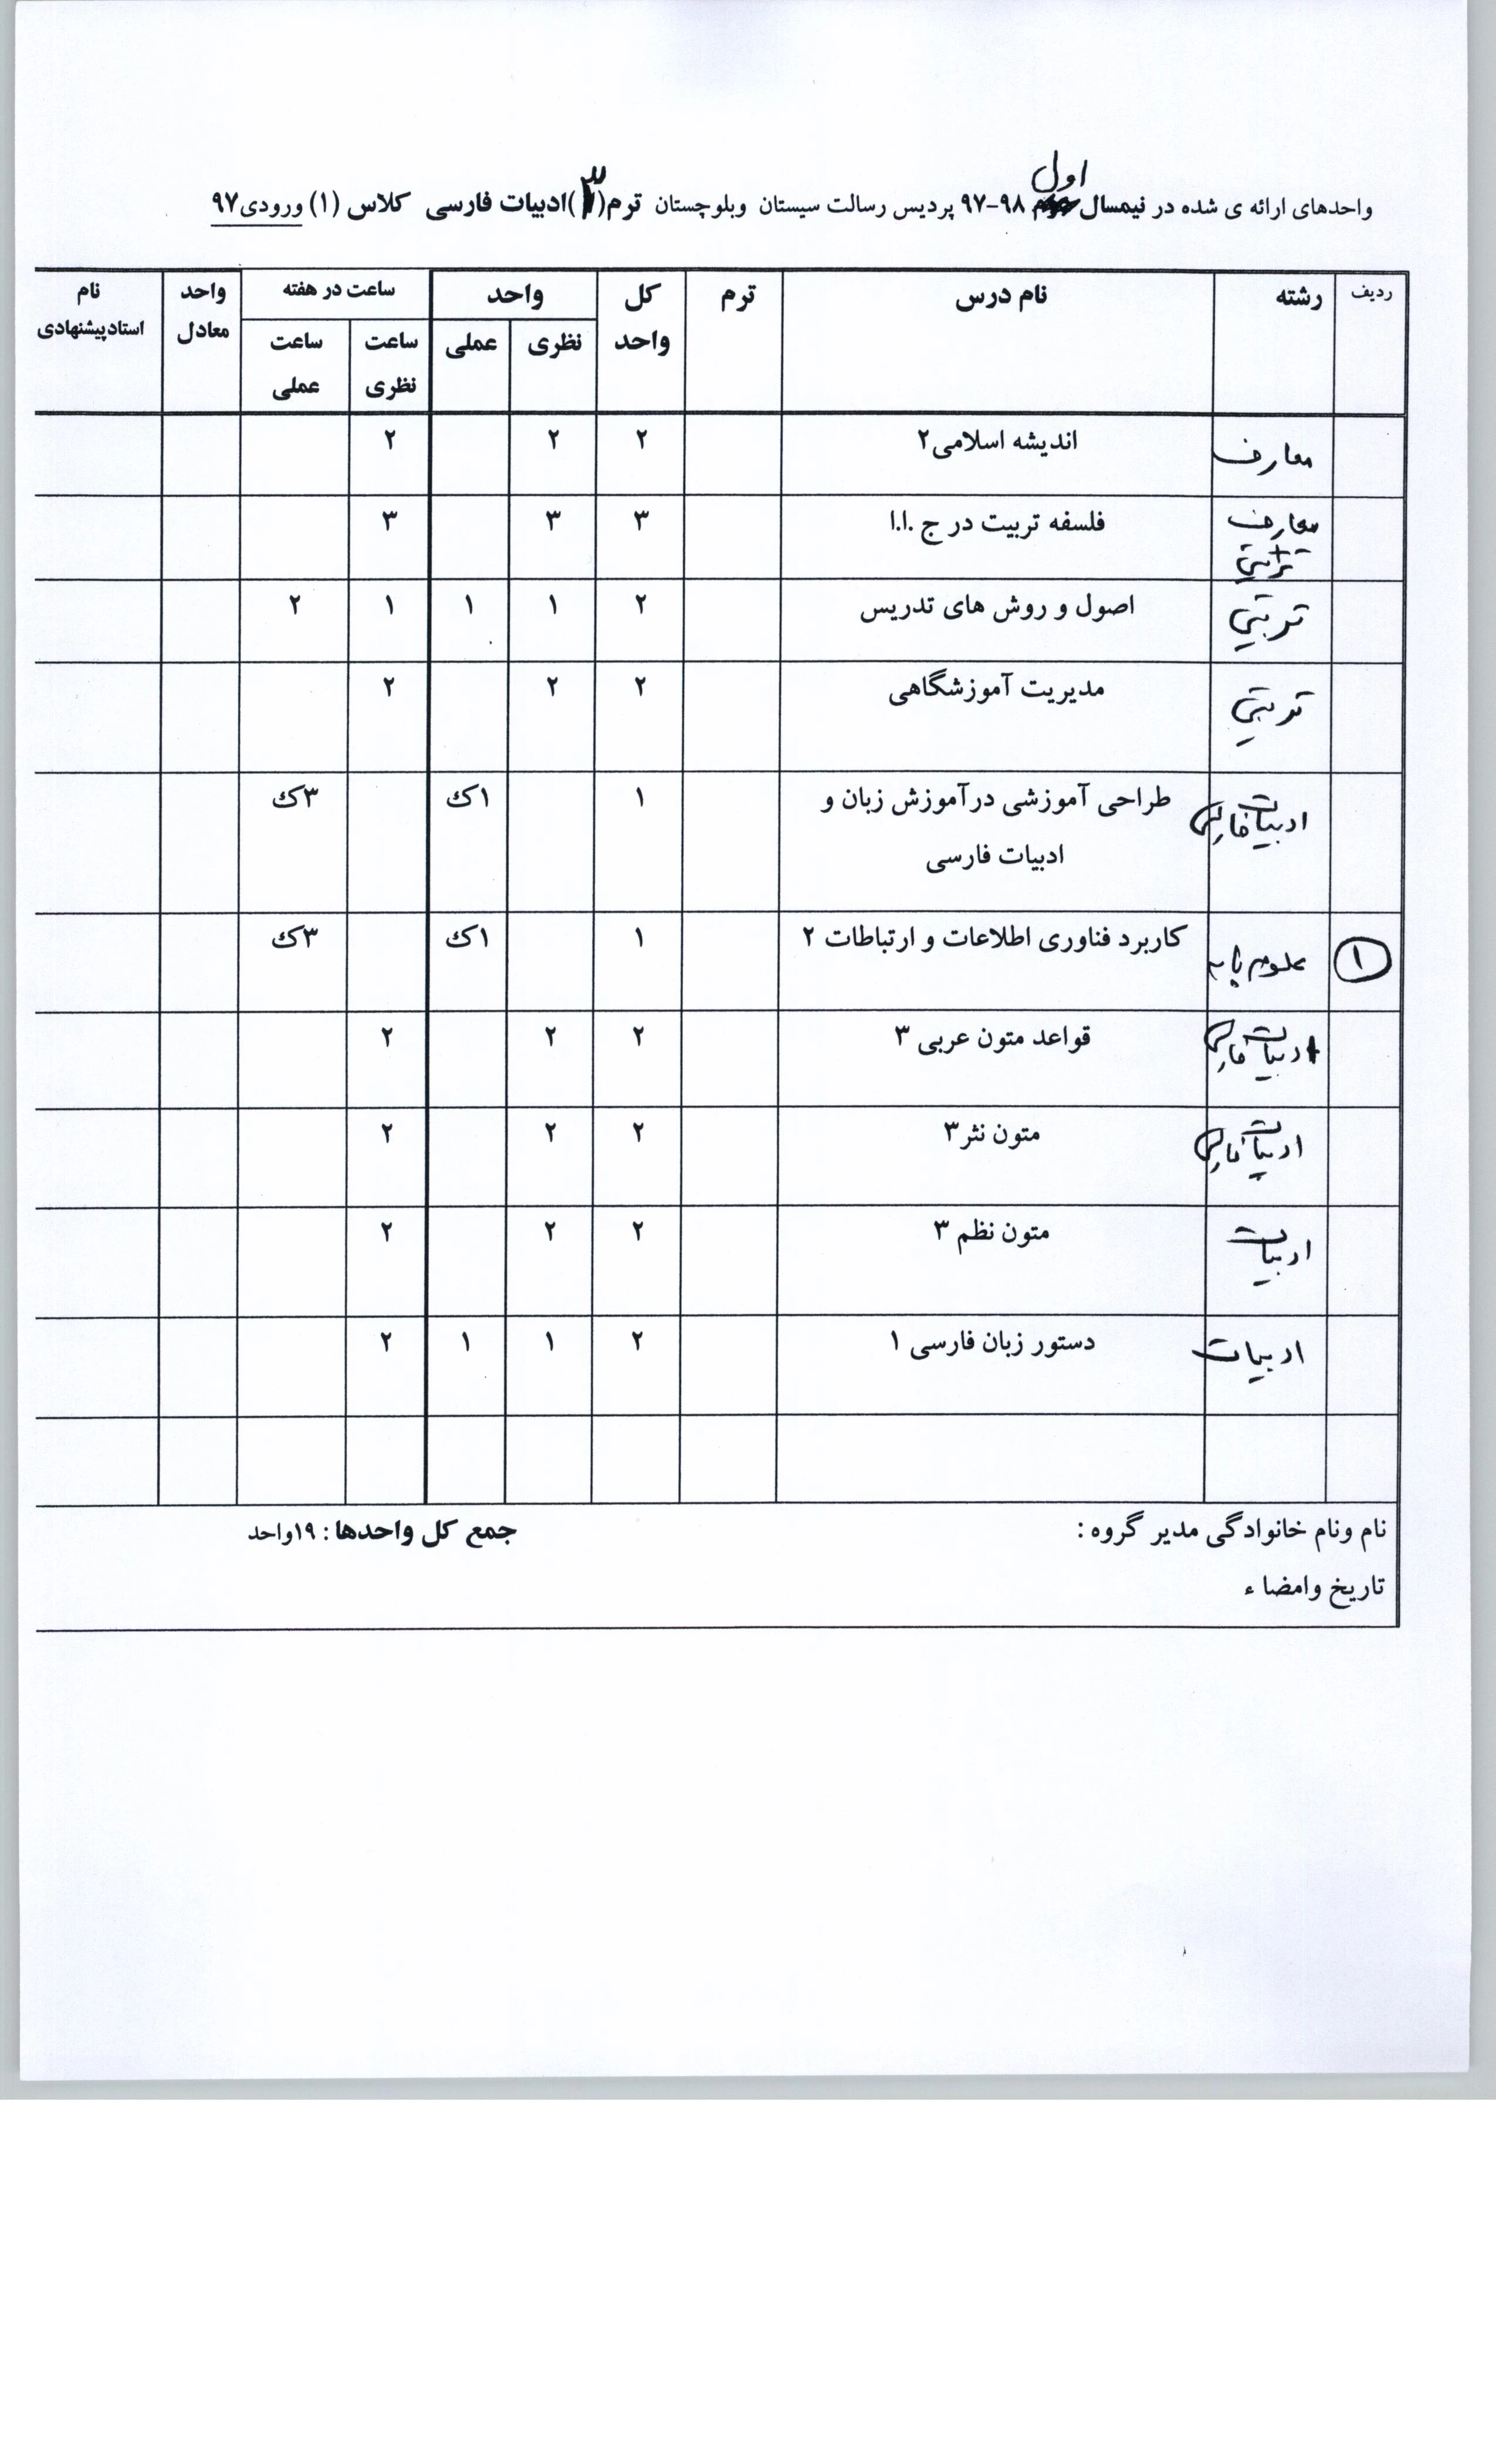 اول
واحدهای ارائه ی شده در نیمسال ۹۸-۹۷ پردیس رسالت سیستان وبلوچستان ترم(۳)ادبیات فارسی کلاس (۱) ورودی۹۷
ردیف رشته نام درس ترم کل واحد واحد ساعت در هفته واحد معادل نام استادپیشنهادی
نظری عملی ساعت نظری ساعت عملی
معارف اندیشه اسلامی۲ ۲ ۲ ۲
معارف + تربیتی فلسفه تربیت در ج .ا.ا ۳ ۳ ۳
تربیتی اصول و روش های تدریس ۲ ۱ ۱ ۱ ۲
تربیتی مدیریت آموزشگاهی ۲ ۲ ۲
ادبیات فارسی طراحی آموزشی درآموزش زبان و ۱ ۱ک ۳ک
ادبیات فارسی
۱ علوم پایه کاربرد فناوری اطلاعات و ارتباطات ۲ ۱ ۱ک ۳ک
ادبیات فارسی قواعد متون عربی ۳ ۲ ۲ ۲
ادبیات فارسی متون نثر۳ ۲ ۲ ۲
ادبیات متون نظم ۳ ۲ ۲ ۲
ادبیات دستور زبان فارسی ۱ ۲ ۱ ۱ ۲
نام ونام خانوادگی مدیر گروه : جمع کل واحدها : ۱۹واحد
تاریخ وامضا ء